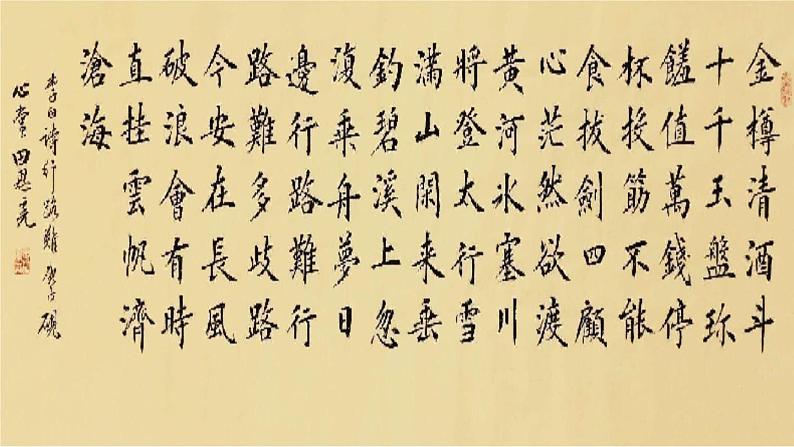 金樽清酒斗
十千玉盤珎
饈值萬錢停
杯投筯不能
食拔劍四顧
心茫然欲渡
黃河氷塞川
將登太行雪
滿山閑來垂
釣碧溪上忽
復乘舟夢日
邊行路難行
路難多歧路
今安在長風
破浪會有時
直挂雲帆濟
滄海
李白詩行路難 硯
心堂田恩亮